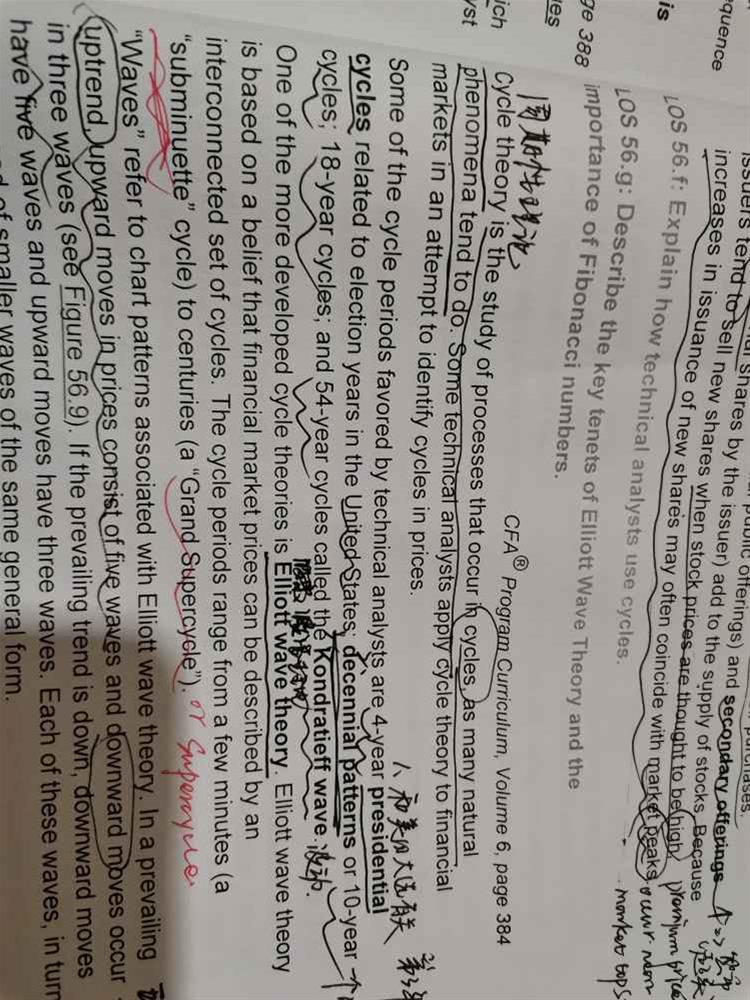 shares by the issuer) and secondary offerings
tend to sell new shares by the issuer) add to the supply of stocks. Because
increases in issuance of new shares may often coincide with market peaks.
when stock prices are thought to be high
premium price
occur near
market tops
LOS 56.f: Explain how technical analysts use cycles.
LOS 56.g: Describe the key tenets of Elliott Wave Theory and the
importance of Fibonacci numbers.
CFA® Program Curriculum, Volume 6, page 384
周期性理论
Cycle theory is the study of processes that occur in cycles, as many natural
phenomena tend to do. Some technical analysts apply cycle theory to financial
markets in an attempt to identify cycles in prices.
Some of the cycle periods favored by technical analysts are 4-year presidential
cycles related to election years in the United States; decennial patterns or 10-year
cycles; 18-year cycles; and 54-year cycles called the Kondratieff wave.
One of the more developed cycle theories is Elliott wave theory. Elliott wave theory
is based on a belief that financial market prices can be described by an
interconnected set of cycles. The cycle periods range from a few minutes (a
“subminuette” cycle) to centuries (a “Grand Supercycle”). or Supercycle
“Waves” refer to chart patterns associated with Elliott wave theory. In a prevailing
uptrend, upward moves in prices consist of five waves and downward moves occur
in three waves (see Figure 56.9). If the prevailing trend is down, downward moves
have five waves and upward moves have three waves. Each of these waves, in turn
of smaller waves of the same general form.
quence
is
ge 388
les
ich
yst